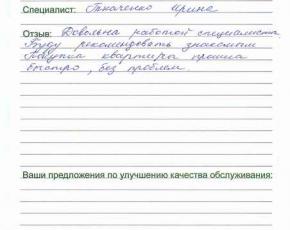 Специалист: Ткаченко Ирина
Отзыв: Довольна работой специалиста
Буду рекомендовать знакомым
Покупка квартиры прошла
быстро, без проблем.
Ваши предложения по улучшению качества обслуживания: